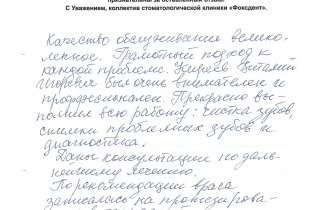 признательны за оставленный отзыв!
С Уважением, коллектив стоматологической клиники «Фоксдент».
Качество обслуживания велико-
лепное. Грамотный подход к
каждой проблеме. Виталий
Игоревич был очень внимателен и
профессионален. Прекрасно вы-
полнил всю работу: чистка зубов,
снимки проблемных зубов и
диагностика.
Даны консультации по даль-
нейшему лечению.
По рекомендации врача
записалась на протезирова-